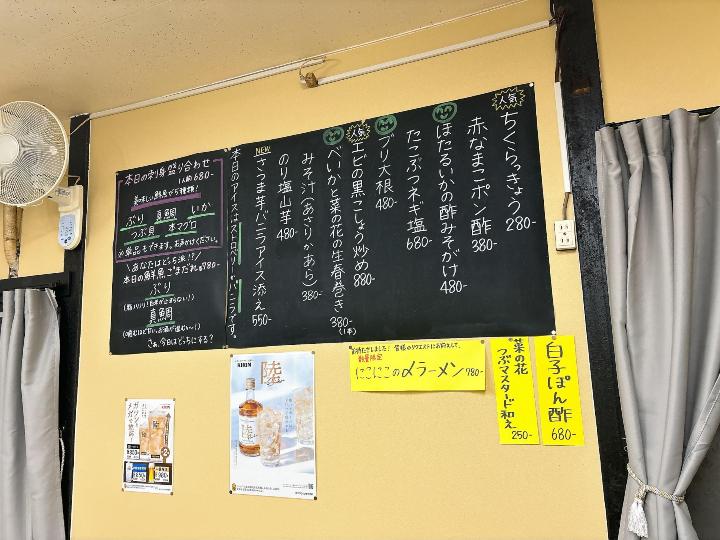 人気
ちくらっきょう 280-
赤なまこポン酢 380-
ほたるいかの酢みそがけ 480-
たこぶつネギ塩 680-
ブリ大根 480-
人気
エビの黒こしょう炒め 880-
べいかと菜の花の生春巻き 380-
(1本)
みそ汁(あさりかあら) 380-
のり塩山芋 480-
NEW
さつま芋バニラアイス添え 550-
本日のアイスはストロベリーかバニラです。
本日の刺身盛り合わせ
1人前 680-
美味しい鮮魚が5種類!
ぶり 真鯛 いか
つぶ貝 本マグロ
単品もできます。お声がけください。
\あなたはどっち派!?/
本日の鮮魚ごまだれ 各780-
ぶり
真鯛
さぁ、今日はどっちにする?
数量限定
にこにこの〆ラーメン 780-
菜の花
つぶマスタード和え
250-
白子ぽん酢
680-
KIRIN
陸